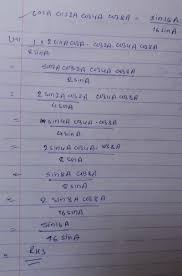 cosA cos2A cos4A cos8A = sin16A / 16 sinA
LHS
1 × 2 sinA cosA · cos2A cos4A cos8A / 2 sinA
= sin2A cos2A cos4A cos8A / 2 sinA
= 2 sin2A cos2A cos4A cos8A / 4 sinA
= sin4A cos4A cos8A / 4 sinA
= 2 sin4A cos4A cos8A / 8 sinA
= sin8A cos8A / 8 sinA
= 2 sin8A cos8A / 16 sinA
= sin16A / 16 sinA
= RHS